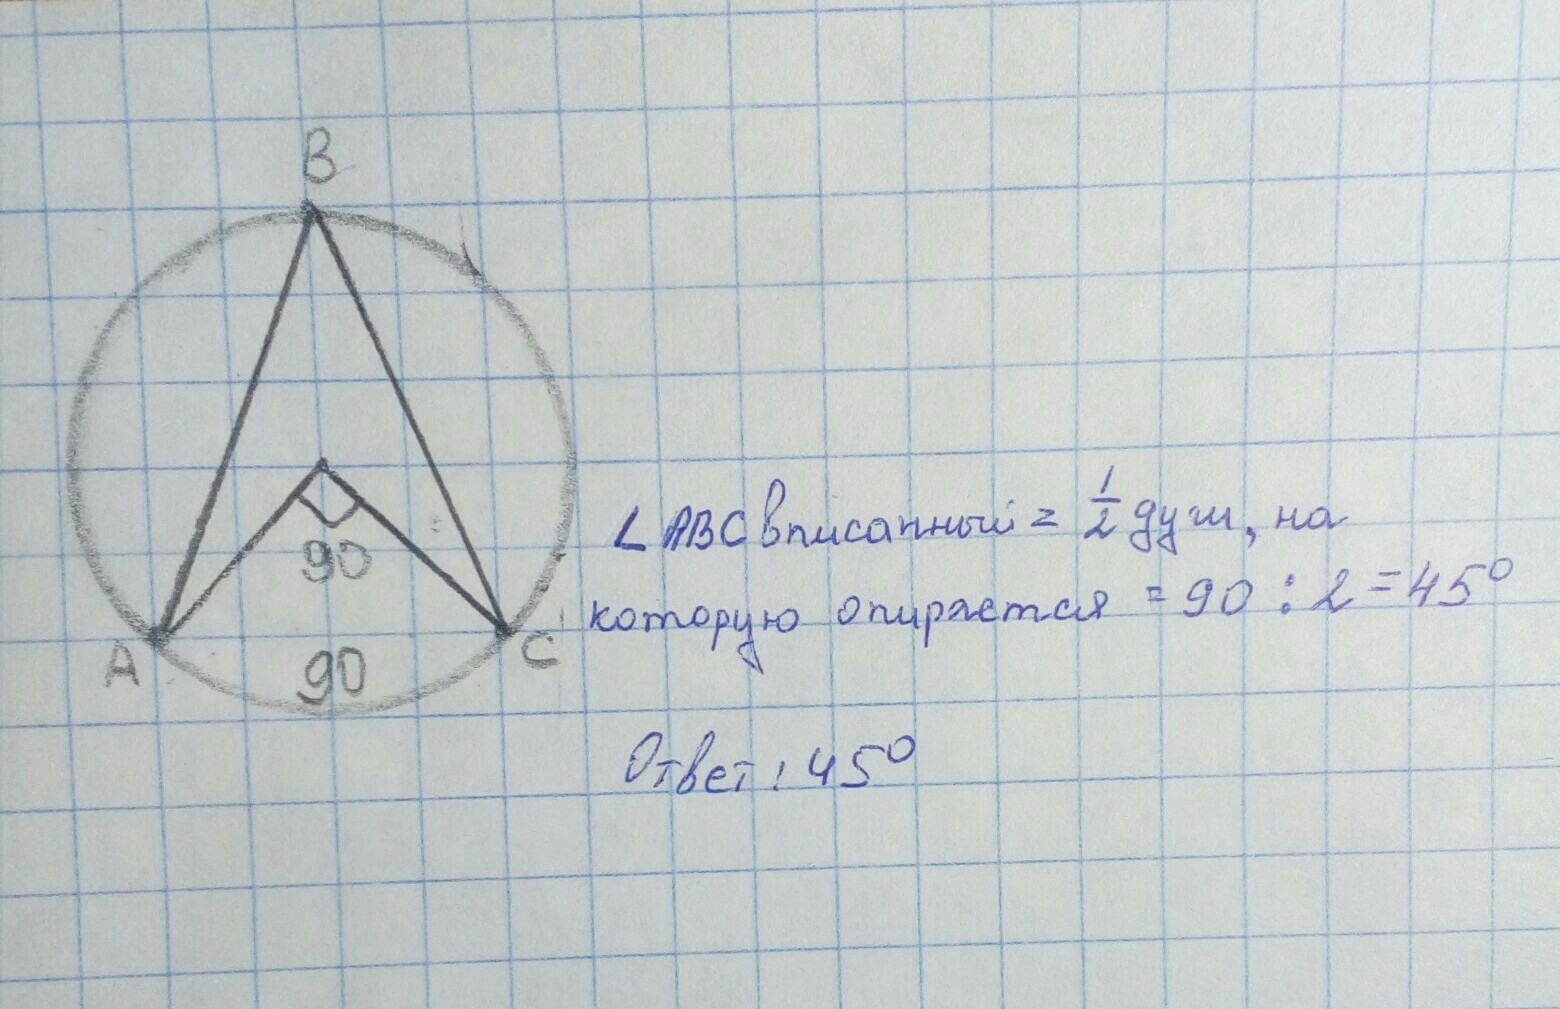 B
90
A
90
C
∠ ABC вписанный = 1/2 дуги, на
которую опирается = 90 : 2 = 45°
Ответ: 45°